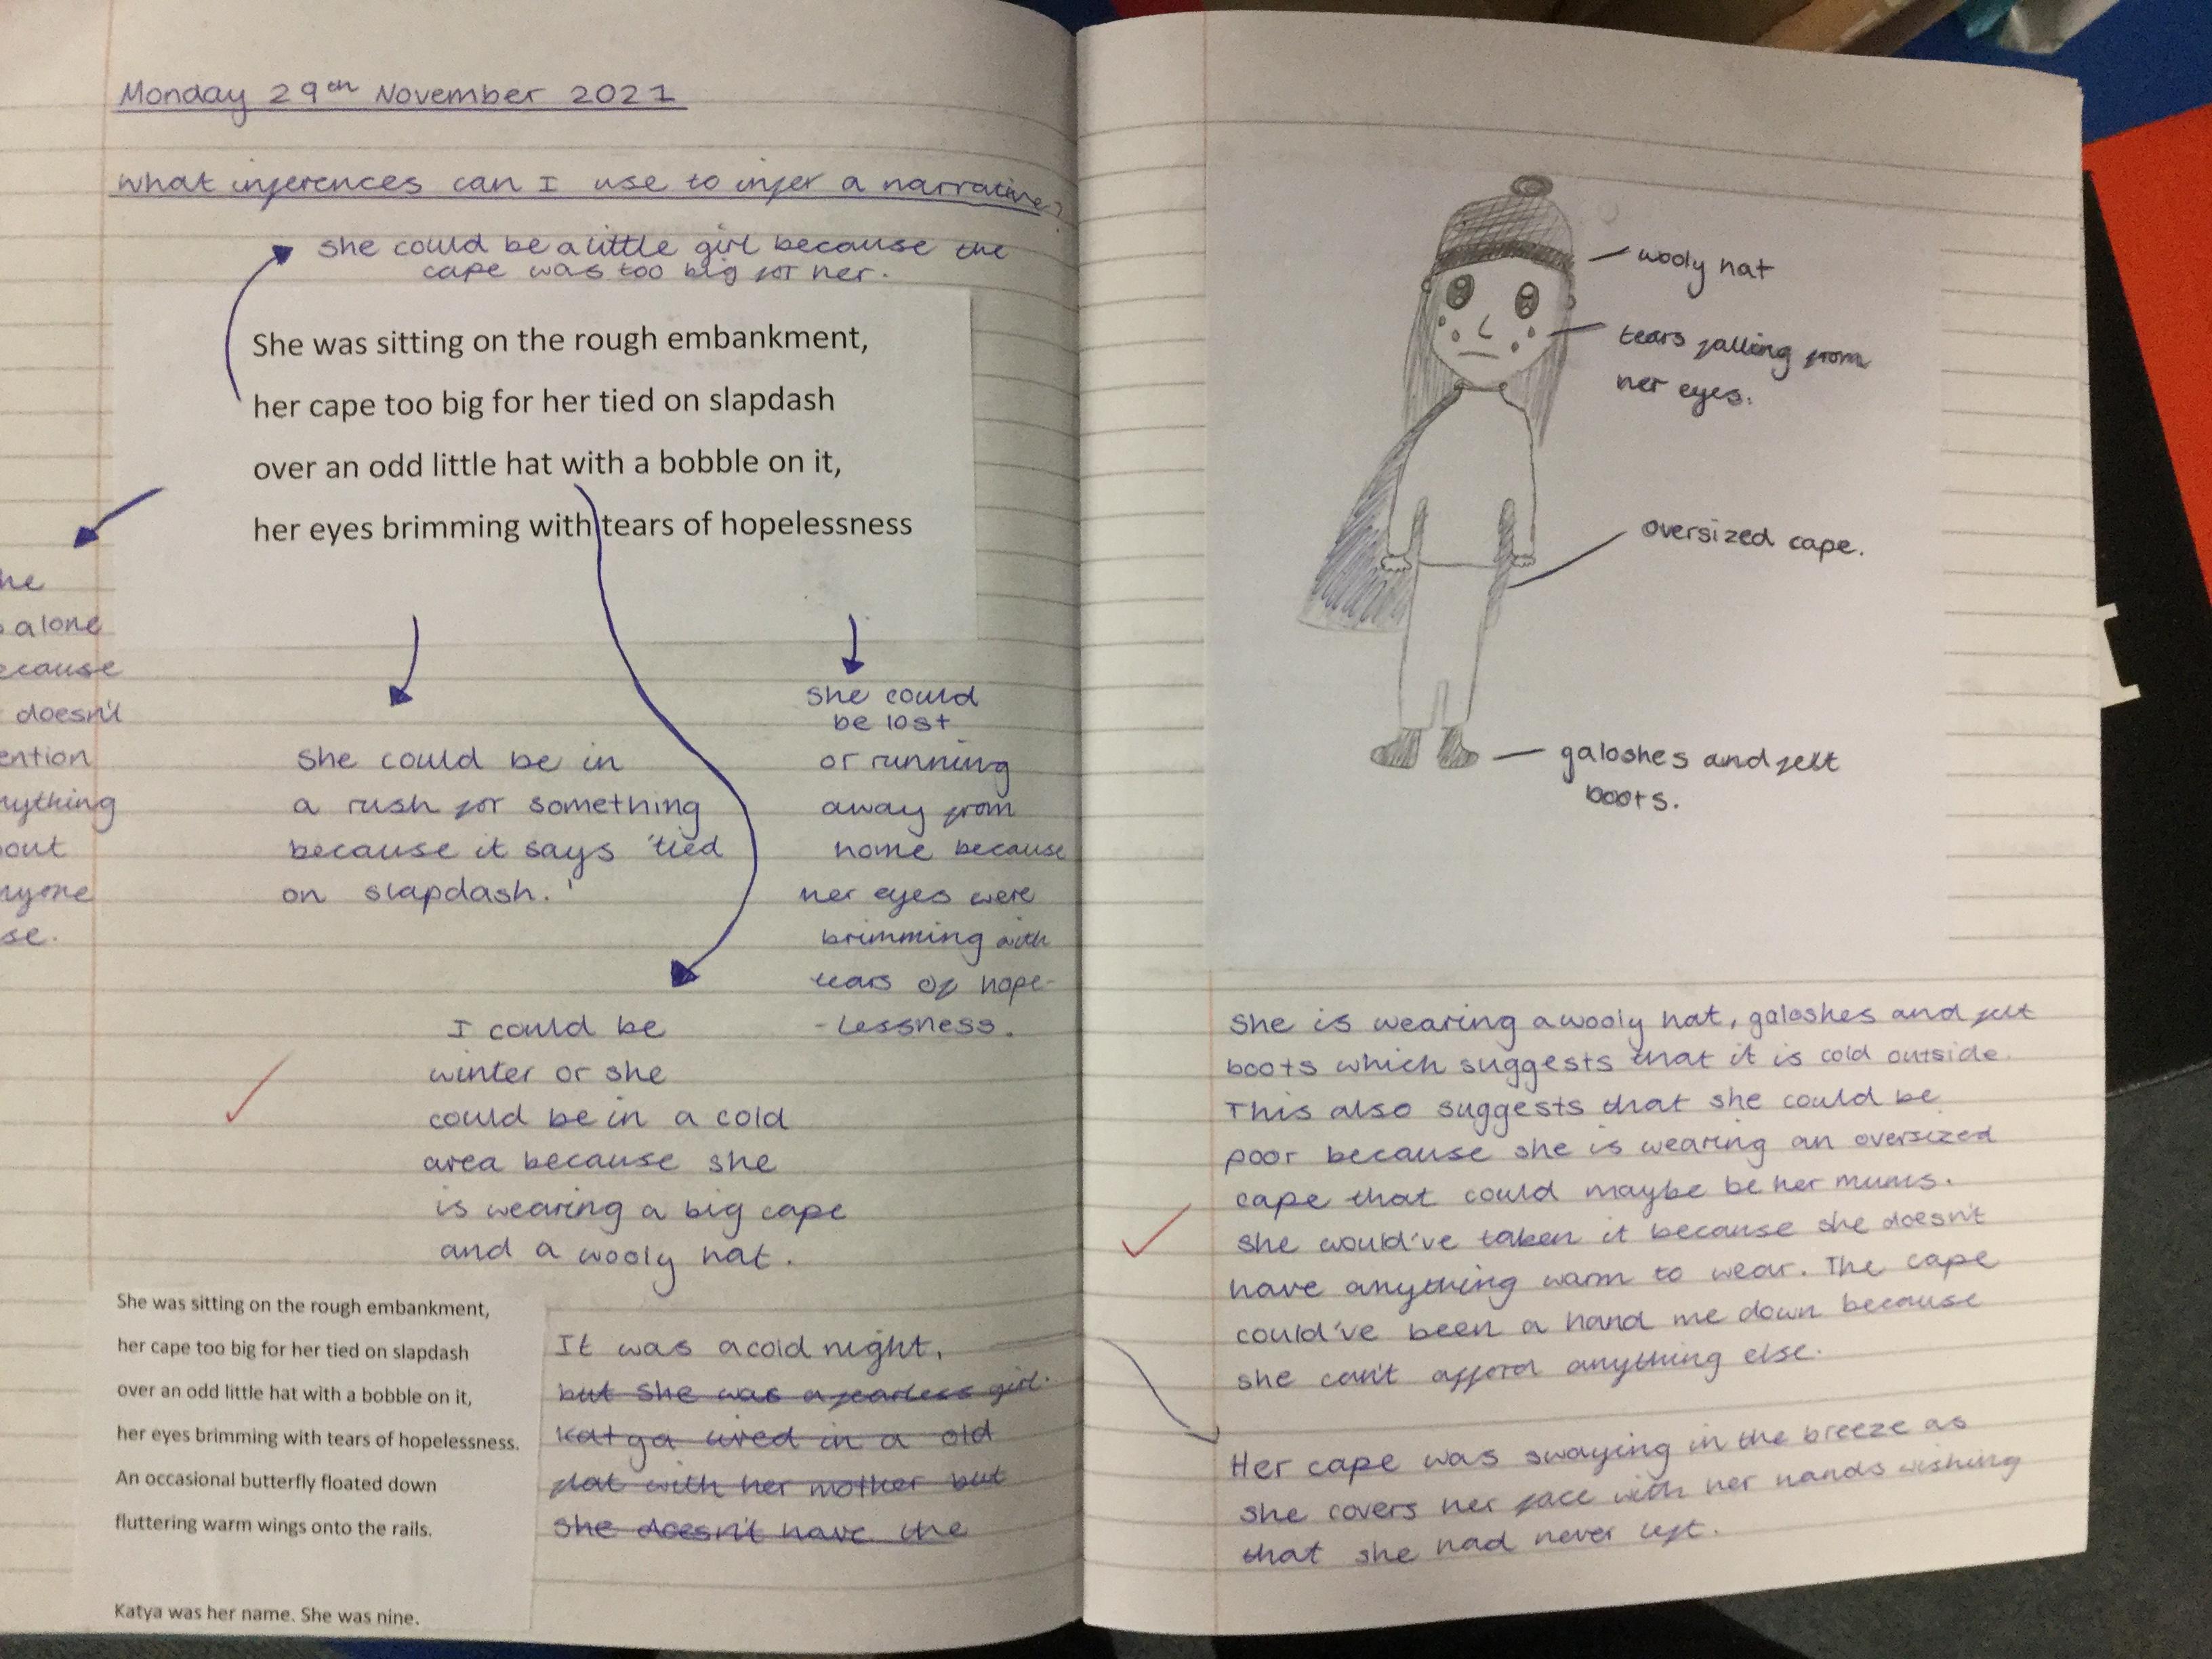 Monday 29th November 2021
What inferences can I use to infer a narrative?
She could be a little girl because the
cape was too big for her.
She was sitting on the rough embankment,
her cape too big for her tied on slapdash
over an odd little hat with a bobble on it,
her eyes brimming with tears of hopelessness
he
alone
ecause
doesn't
ention
nything
out
nyone
se.
She could be in
a rush for something
because it says 'tied
on slapdash.'
She could
be lost
or running
away from
home because
her eyes were
brimming with
tears of hope-
-lessness.
I could be
winter or she
could be in a cold
area because she
is wearing a big cape
and a wooly hat.
She was sitting on the rough embankment,
her cape too big for her tied on slapdash
over an odd little hat with a bobble on it,
her eyes brimming with tears of hopelessness.
An occasional butterfly floated down
fluttering warm wings onto the rails.
Katya was her name. She was nine.
It was a cold night,
but she was a fearless girl.
Katya lived in a old
flat with her mother but
she doesn't have the
wooly hat
tears falling from
her eyes.
oversized cape.
galoshes and felt
boots.
She is wearing a wooly hat, galoshes and felt
boots which suggests that it is cold outside.
This also suggests that she could be
poor because she is wearing an oversized
cape that could maybe be her mums.
She would've taken it because she doesn't
have anything warm to wear. The cape
could've been a hand me down because
she can't afford anything else.
Her cape was swaying in the breeze as
she covers her face with her hands wishing
that she had never left.